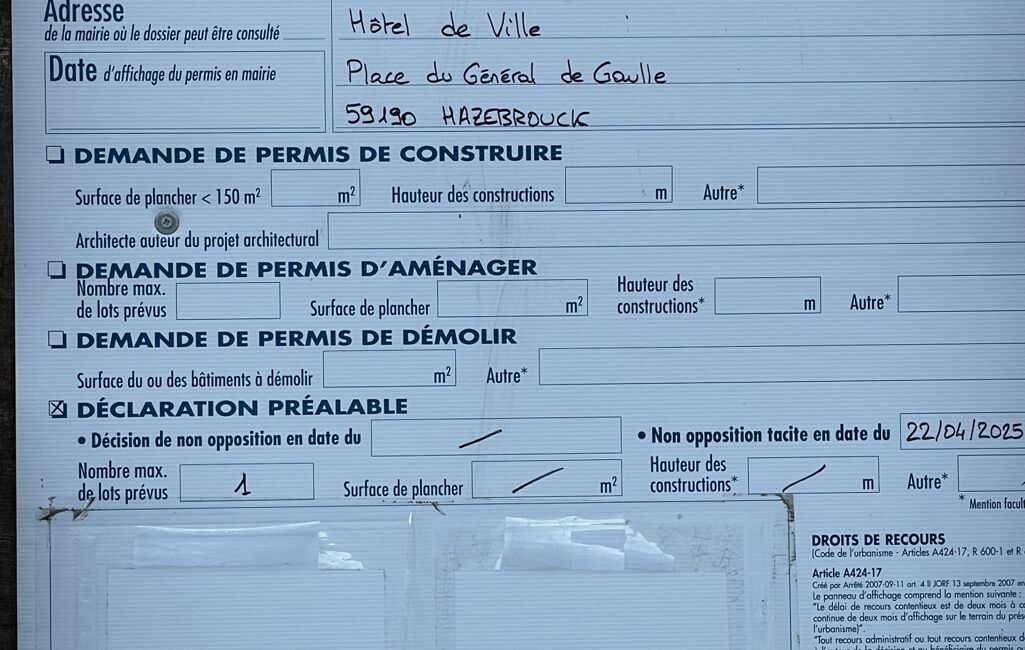 Adresse
de la mairie où le dossier peut être consulté
Hôtel de Ville
Date d'affichage du permis en mairie
Place du Général de Gaulle
59190 HAZEBROUCK
DEMANDE DE PERMIS DE CONSTRUIRE
Surface de plancher < 150 m² m² Hauteur des constructions m Autre*
Architecte auteur du projet architectural
DEMANDE DE PERMIS D'AMÉNAGER
Nombre max.
de lots prévus Surface de plancher m² Hauteur des
constructions* m Autre*
DEMANDE DE PERMIS DE DÉMOLIR
Surface du ou des bâtiments à démolir m² Autre*
☒ DÉCLARATION PRÉALABLE
• Décision de non opposition en date du / • Non opposition tacite en date du 22/04/2025
Nombre max.
de lots prévus 1 Surface de plancher / m² Hauteur des
constructions* / m Autre*
* Mention facult
DROITS DE RECOURS
(Code de l'urbanisme - Articles A424-17, R 600-1 et R
Article A424-17
Créé par Arrêté 2007-09-11 art. 4 II JORF 13 septembre 2007 en
Le panneau d'affichage comprend la mention suivante :
"Le délai de recours contentieux est de deux mois à co
continue de deux mois d'affichage sur le terrain du prés
l'urbanisme)".
"Tout recours administratif ou tout recours contentieux d